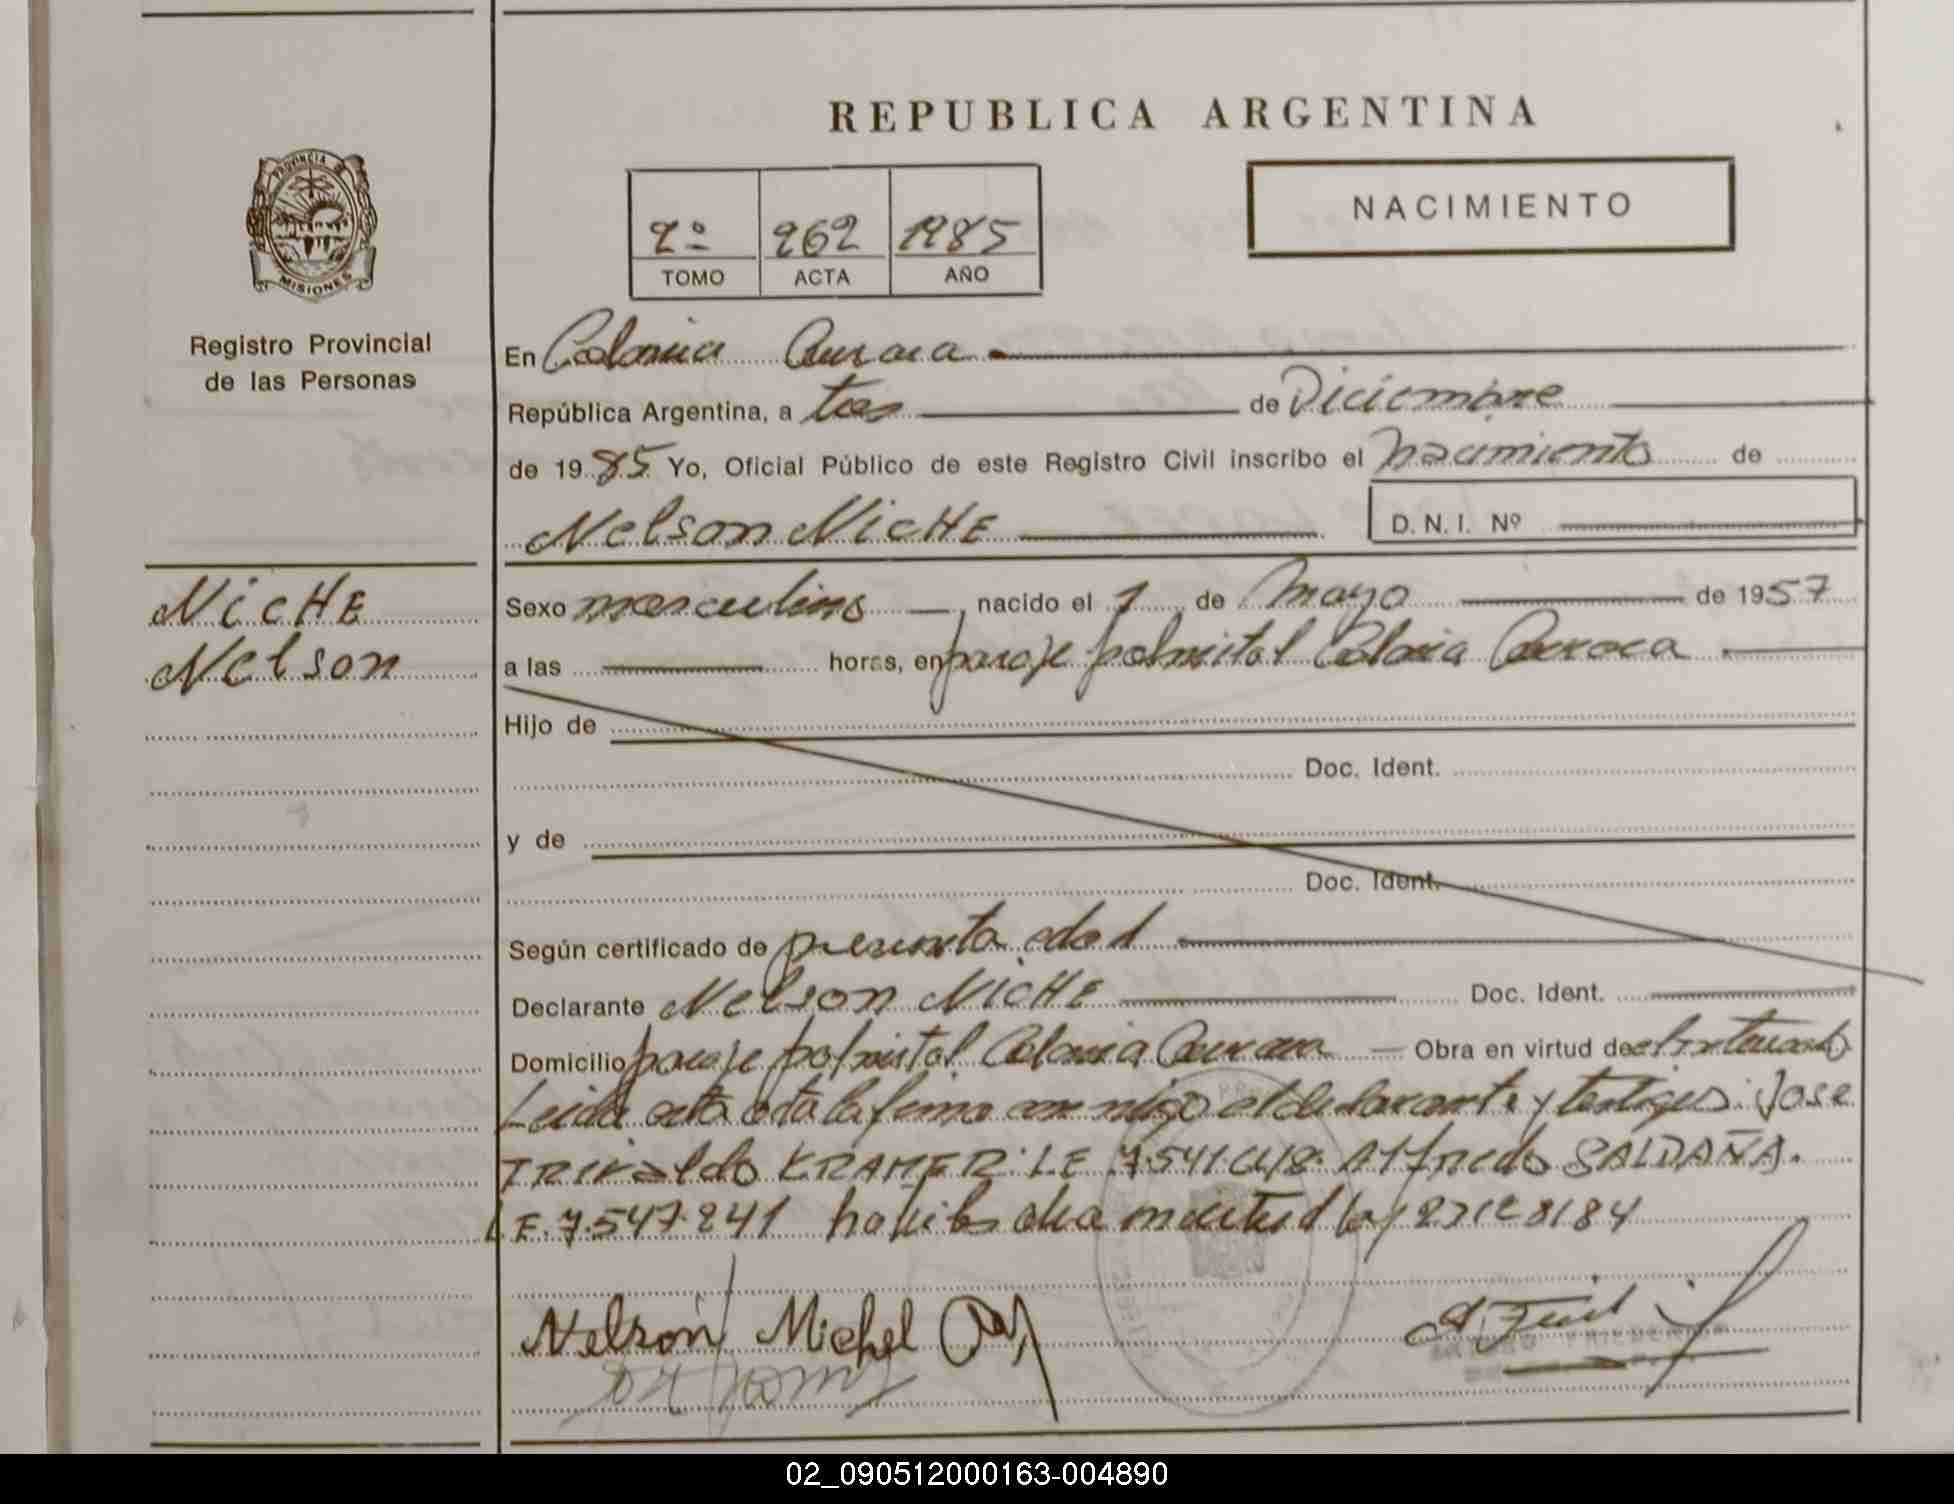 REPUBLICA ARGENTINA
PROVINCIA DE
MISIONES
Registro Provincial
de las Personas
2º 262 1985
TOMO ACTA AÑO
NACIMIENTO
En Colonia Aurora
República Argentina, a tres de Diciembre
de 1985 Yo, Oficial Público de este Registro Civil inscribo el Nacimiento de
Nelson NicHE D.N.I. Nº
NicHE
Nelson
Sexo masculino, nacido el 1 de Mayo de 1957
a las horas, en paraje palmital Colonia Aurora
Hijo de
Doc. Ident.
y de
Doc. Ident.
Según certificado de presunta edad
Declarante Nelson NicHE Doc. Ident.
Domicilio paraje palmital Colonia Aurora Obra en virtud de el interesado
Leida esta acta la firma conmigo el declarante y testigos: Jose
KRAMER: LE 7.541. Alfredo SALDAÑA.
LE. 7.547.241
Nelson Michel
02_090512000163-004890